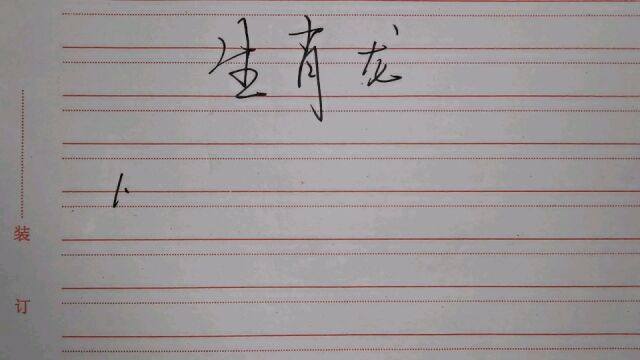 生肖龙
1.
装
订